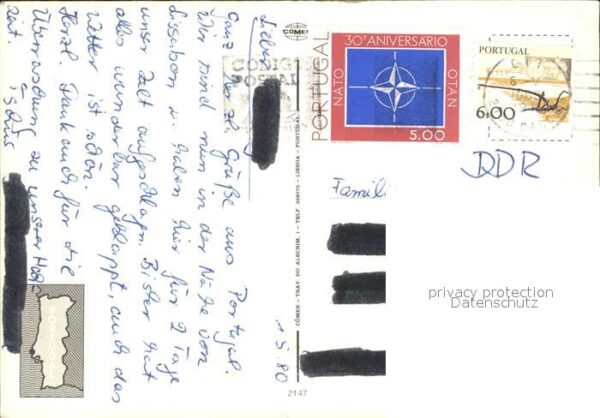 Liebe
Ganz Grüße aus Portugal.
Wir sind nun in der Nähe von
Lissabon u. haben hier für 2 Tage
unser Zelt aufgeschlagen. Bisher hat
alles wunderbar geklappt, auch das
Wetter ist schön.
Herzl. Dank auch für die
Überraschung zu unserer Hoch-
zeit.
1.5.80
CÓMER
CODIGO
POSTAL
CÓMER - TRAV. DO ALECRIM, 1 - TELF - LISBOA - PORTUGAL
2147
PORTUGAL
PORTUGAL
30º ANIVERSARIO
NATO
OTAN
5.00
PORTUGAL
6$00
DDR
Famili
privacy protection
Datenschutz